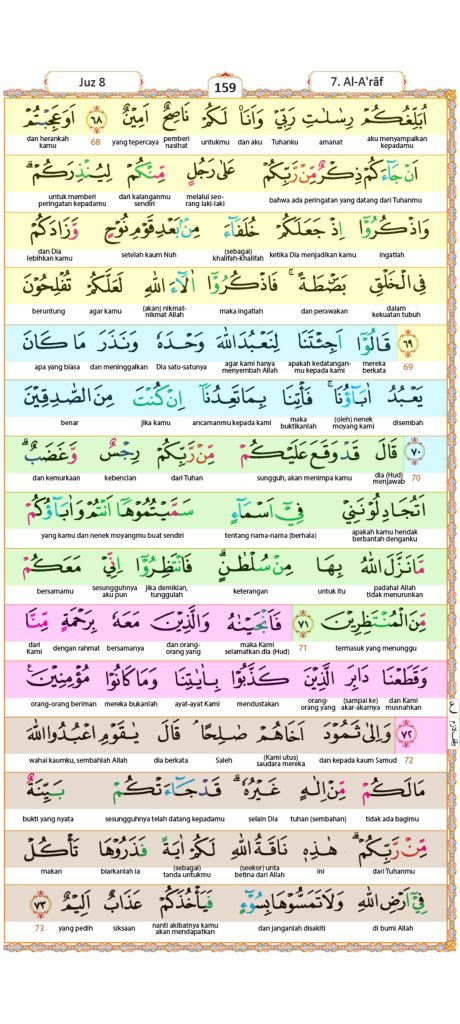 Juz 8
159
7. Al-A'rāf
اُبَلِّغُكُمْ رِسٰلٰتِ رَبِّيْ وَاَنَا۠ لَكُمْ نَاصِحٌ اَمِيْنٌ ٦٨ اَوَعَجِبْتُمْ
aku menyampaikan kepadamu amanat Tuhanku dan aku untukmu pemberi nasihat yang tepercaya 68 dan herankah kamu
اَنْ جَاۤءَكُمْ ذِكْرٌ مِّنْ رَّبِّكُمْ عَلٰى رَجُلٍ مِّنْكُمْ لِيُنْذِرَكُمْۗ
bahwa ada peringatan yang datang dari Tuhanmu melalui seorang laki-laki dari kalanganmu sendiri untuk memberi peringatan kepadamu
وَاذْكُرُوْٓا اِذْ جَعَلَكُمْ خُلَفَاۤءَ مِنْۢ بَعْدِ قَوْمِ نُوْحٍ وَّزَادَكُمْ
ingatlah ketika Dia menjadikan kamu (sebagai) khalifah-khalifah setelah kaum Nuh dan Dia lebihkan kamu
فِى الْخَلْقِ بَصْۣطَةً ۚ فَاذْكُرُوْٓا اٰلَاۤءَ اللّٰهِ لَعَلَّكُمْ تُفْلِحُوْنَ
dalam kekuatan tubuh dan perawakan maka ingatlah (akan) nikmat-nikmat Allah agar kamu beruntung
٦٩ قَالُوْٓا اَجِئْتَنَا لِنَعْبُدَ اللّٰهَ وَحْدَهٗ وَنَذَرَ مَا كَانَ
69 mereka berkata apakah kedatanganmu kepada kami agar kami hanya menyembah Allah Dia satu-satunya dan meninggalkan apa yang biasa
يَعْبُدُ اٰبَاۤؤُنَاۚ فَأْتِنَا بِمَا تَعِدُنَآ اِنْ كُنْتَ مِنَ الصّٰدِقِيْنَ
disembah (oleh) nenek moyang kami maka buktikanlah ancamanmu kepada kami jika kamu benar
٧٠ قَالَ قَدْ وَقَعَ عَلَيْكُمْ مِّنْ رَّبِّكُمْ رِجْسٌ وَّغَضَبٌۗ
70 dia (Hud) menjawab sungguh, akan menimpa kamu dari Tuhan kebencian dan kemurkaan
اَتُجَادِلُوْنَنِيْ فِيْٓ اَسْمَاۤءٍ سَمَّيْتُمُوْهَآ اَنْتُمْ وَاٰبَاۤؤُكُمْ
apakah kamu hendak berbantah denganku tentang nama-nama (berhala) yang kamu dan nenek moyangmu buat sendiri
مَّا نَزَّلَ اللّٰهُ بِهَا مِنْ سُلْطٰنٍۗ فَانْتَظِرُوْٓا اِنِّيْ مَعَكُمْ
padahal Allah tidak menurunkan untuk itu keterangan jika demikian, tunggulah sesungguhnya aku pun bersamamu
مِّنَ الْمُنْتَظِرِيْنَ ٧١ فَاَنْجَيْنٰهُ وَالَّذِيْنَ مَعَهٗ بِرَحْمَةٍ مِّنَّا
termasuk yang menunggu 71 maka Kami selamatkan dia (Hud) dan orang-orang yang bersamanya dengan rahmat dari Kami
وَقَطَعْنَا دَابِرَ الَّذِيْنَ كَذَّبُوْا بِاٰيٰتِنَا وَمَا كَانُوْا مُؤْمِنِيْنَ ࣖ
dan Kami musnahkan (sampai ke) akar-akarnya orang-orang yang mendustakan ayat-ayat Kami mereka bukanlah orang-orang beriman
٧٢ وَاِلٰى ثَمُوْدَ اَخَاهُمْ صٰلِحًاۘ قَالَ يٰقَوْمِ اعْبُدُوا اللّٰهَ
72 dan kepada kaum Samud (Kami utus) saudara mereka Saleh dia berkata wahai kaumku, sembahlah Allah
مَا لَكُمْ مِّنْ اِلٰهٍ غَيْرُهٗۗ قَدْ جَاۤءَتْكُمْ بَيِّنَةٌ
tidak ada bagimu tuhan (sembahan) selain Dia sesungguhnya telah datang kepadamu bukti yang nyata
مِّنْ رَّبِّكُمْۗ هٰذِهٖ نَاقَةُ اللّٰهِ لَكُمْ اٰيَةً فَذَرُوْهَا تَأْكُلْ
dari Tuhanmu ini (seekor) unta betina dari Allah (sebagai) tanda untukmu biarkanlah ia makan
فِيْٓ اَرْضِ اللّٰهِ وَلَا تَمَسُّوْهَا بِسُوْۤءٍ فَيَأْخُذَكُمْ عَذَابٌ اَلِيْمٌ ٧٣
di bumi Allah dan janganlah disakiti nanti akibatnya kamu akan mendapatkan siksaan yang pedih 73